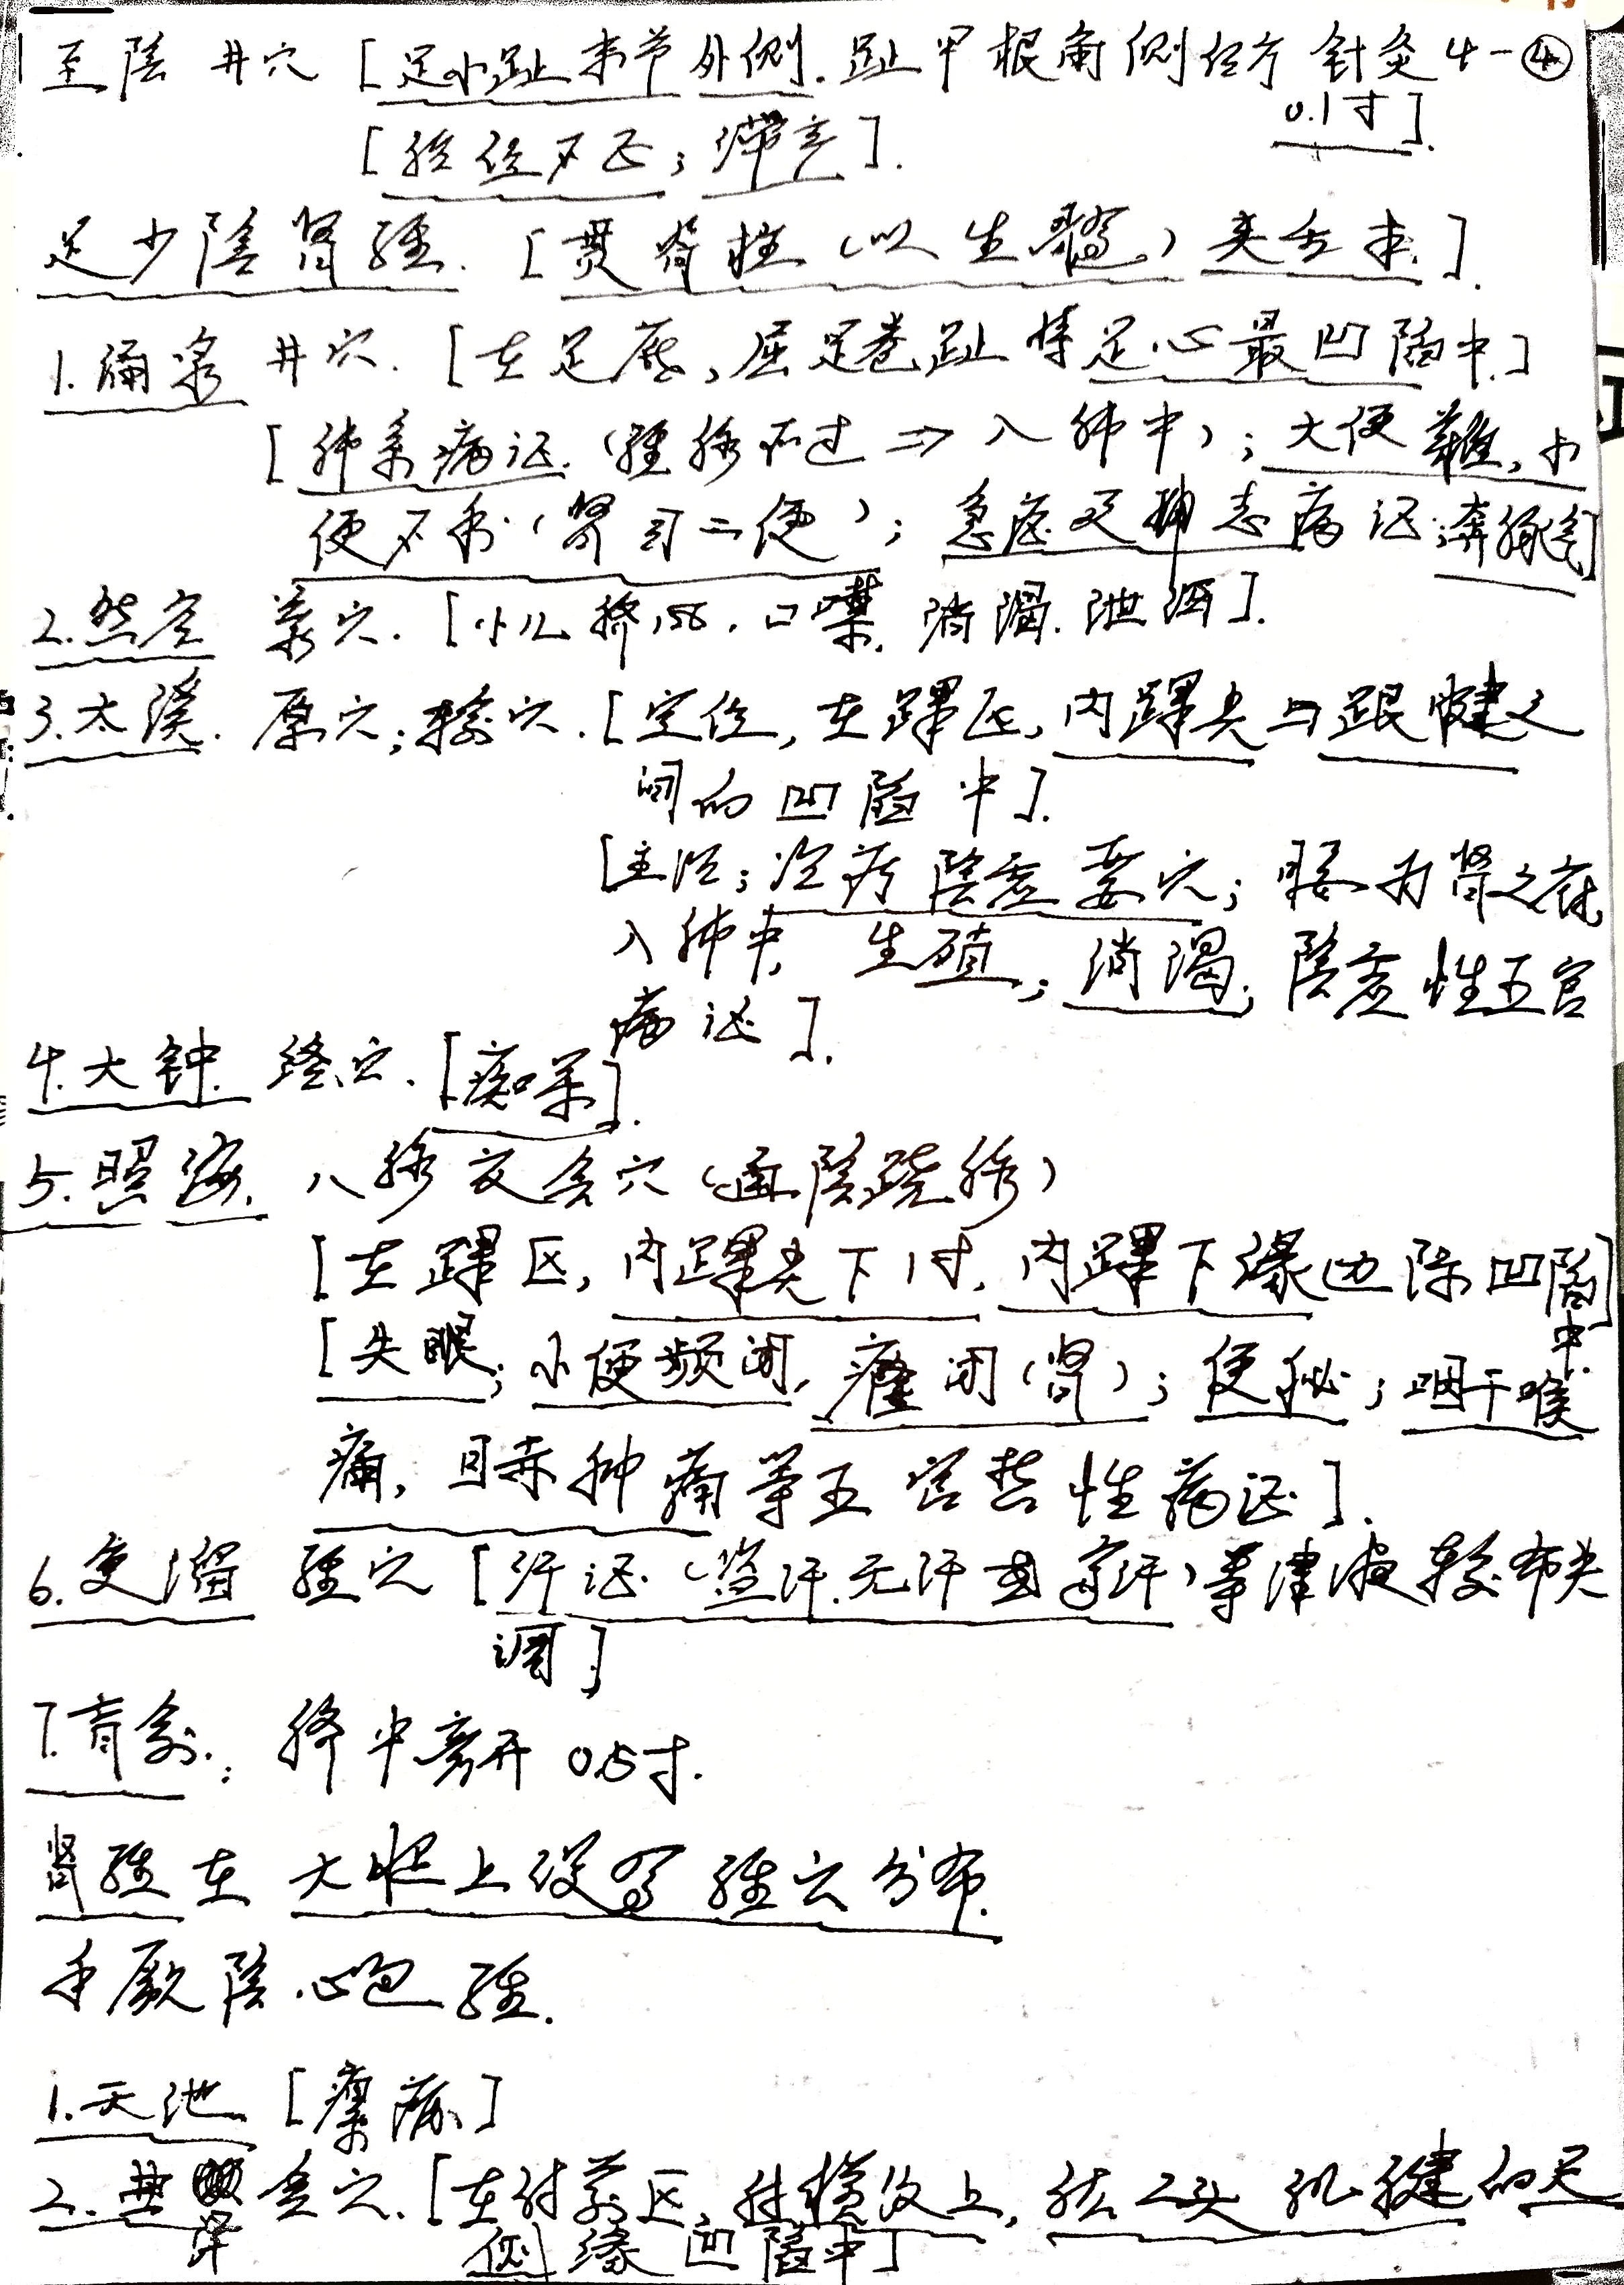 至陰 井穴 [足小趾末节外侧. 趾甲根角侧后方 针灸4-④
0.1寸].
[胎位不正; 滞产].
足少陰肾經. [贯脊柱 (以生髓.) 夹舌本.].
1.涌泉 井穴. [在足底, 屈足卷趾 時足心最凹陷中.]
[肺系病证. (經脉所过 ⇒ 入肺中); 大便難, 小
便不利 (肾司二便); 急症及神志病证; 奔豚氣]
2.然谷 荥穴. [小儿脐风. 口噤. 消渴. 泄泻].
3.太溪. 原穴; 输穴. [定位, 在踝区, 内踝尖与跟腱之
间的凹陷中].
[主治; 治疗陰虚要穴; 腰为肾之府,
入肺中, 生殖; 消渴; 陰虚性五官
病证].
4.大钟. 络穴. [痴呆].
5.照海. 八脉交会穴 (通陰跷脉)
[在踝区, 内踝尖下1寸, 内踝下缘边际凹陷]
中.
[失眠; 小便频闭, 癃闭(肾); 便秘; 咽干喉
痛, 目赤肿痛等五官热性病证].
6.复溜 經穴 [汗证. (盗汗. 无汗或多汗) 等津液输布失
调]
7.肓俞.: 脐中旁开0.5寸.
肾經在大腿上没有經穴分布.
手厥陰心包經.
1.天池 [瘰疬]
2.曲 会穴. [在肘前区, 肘横纹上, 肱二头肌腱的尺
泽 侧缘凹陷中]